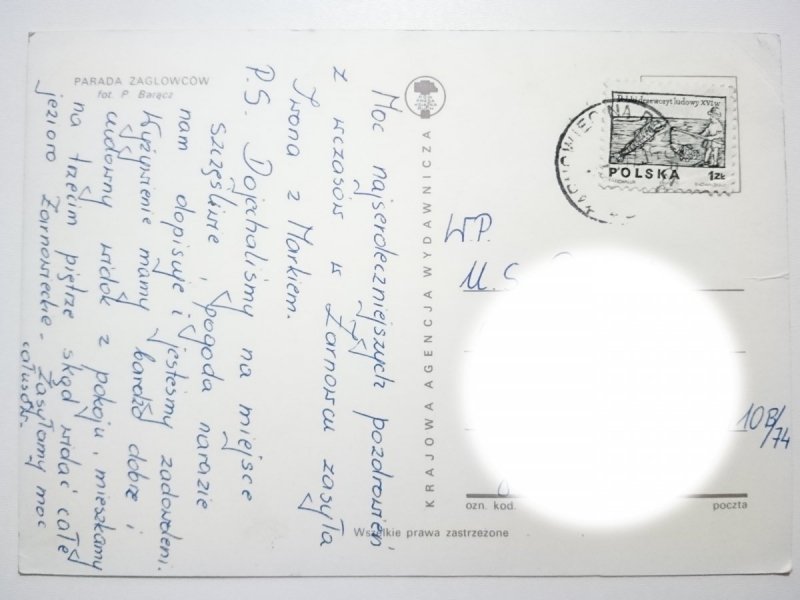 PARADA ŻAGLOWCÓW
fot. P. Barącz
Moc najserdeczniejszych pozdrowień
z wczasów w Żarnowcu zasyła
Iwona z Markiem.
P.S. Dojechaliśmy na miejsce
szczęśliwie, pogoda narazie
nam dopisuje i jesteśmy zadowoleni.
Wyżywienie mamy bardzo dobre i
cudowny widok z pokoju, mieszkamy
na trzecim piętrze skąd widać całe
jezioro Żarnowieckie. Zasyłamy moc
całusów.
KRAJOWA AGENCJA WYDAWNICZA
Drzeworyt ludowy XVI w
POLSKA 1 ZŁ
W.P.
M. S.
10B/74
ozn. kod.
poczta
Wszelkie prawa zastrzeżone